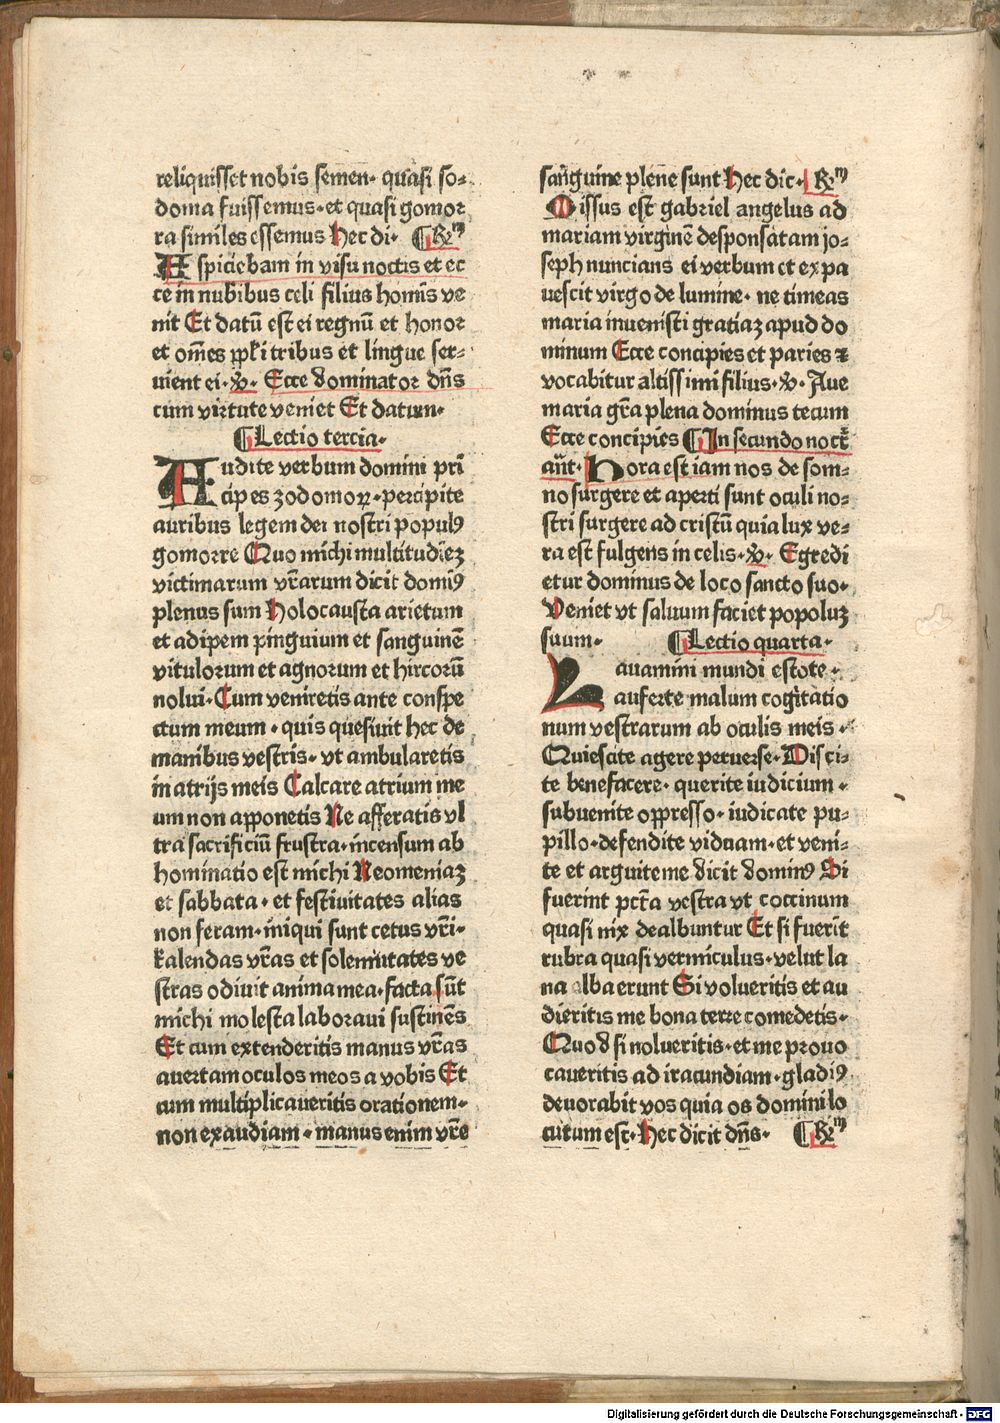 reliquisset nobis semen· quasi so⸗
doma fuissemus·et quasi gomor
ra similes essemus Hec di· ¶R̃m
Aspiciebam in visu noctis et ec
ce in nubibus celi filius homīs ve
nit Et datū est ei regnū et honor
et om̄es ppl̓i tribus et lingue ser⸗
uient ei·℣· Ecce dominator dn̄s
cum virtute veniet Et datum·
¶Lectio tercia·
Audite verbum domini prī
cipes zodomoꝝ·percipite
auribus legem dei nostri populꝰ
gomorre Quo michi multitudīeꝫ
victimarum vr̄arum dicit domīꝰ
plenus sum Holocausta arietum
et adipem pinguium et sanguinē
vitulorum et agnorum et hircorū
nolui·Cum veniretis ante conspe
ctum meum·quis quesiuit hec de
manibus vestris·vt ambularetis
in atrijs meis Calcare atrium me
um non apponetis Ne afferatis vl
tra sacrificiū frustra·incensum ab
hominatio est michi Neomeniaꝫ
et sabbata·et festiuitates alias
non feram·iniqui sunt cetus vr̄i·
kalendas vr̄as et solemnitates ve
stras odiuit anima mea·facta sūt
michi molesta laboraui sustinēs
Et cum extenderitis manus vr̄as
auertam oculos meos a vobis Et
cum multiplicaueritis orationem·
non exaudiam·manus enim vr̄e
san̄guine plene sunt Hec dic· ¶R̃m
Missus est gabriel angelus ad
mariam virginē desponsatam jo⸗
seph nuncians ei verbum et expa
uescit virgo de lumine·ne timeas
maria inuenisti gratiaꝫ apud do
minum Ecce concipies et paries ⁊
vocabitur altissimi filius·℣·Aue
maria gr̄a plena dominus tecum
Ecce concipies ¶In secundo noct̄
an̄t·Hora est iam nos de som⸗
no surgere et aperti sunt oculi no⸗
stri surgere ad cristū quia lux ve⸗
ra est fulgens in celis·℣· Egredi
etur dominus de loco sancto suo·
Veniet vt saluum faciet populuꝫ
suum· ¶Lectio quarta·
Lauamini mundi estote·
auferte malum cogitatio
num vestrarum ab oculis meis·
Quiescite agere peruerse·Disci⸗
te benefacere·querite iudicium·
subuenite oppresso·iudicate pu⸗
pillo·defendite viduam·et veni⸗
te et arguite me dicit dominꝰ Si
fuerint pctā vestra vt coccinum
quasi nix dealbuntur Et si fuerīt
rubra quasi vermiculus·velut la
na alba erunt Si volueritis et au
dieritis me bona terre comedetis·
Quod si nolueritis·et me prouo
caueritis ad iracundiam·gladiꝰ
deuorabit vos quia os domini lo
cutum est·Hec dicit dn̄s· ¶R̃m
Digitalisierung gefördert durch die Deutsche Forschungsgemeinschaft - DFG